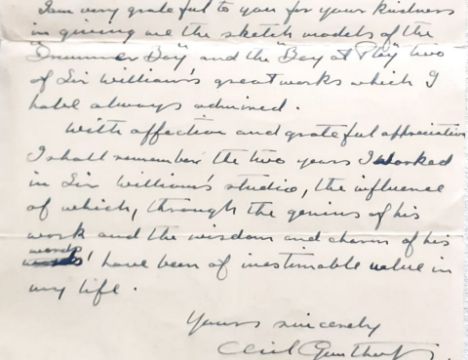 I am very grateful to you for your kindness
in giving me the sketch models of the
"Drummer Boy" and the "Boy at Play" two
of Sir William's great works which I
have always admired.
With affection and grateful appreciation
I shall remember the two years I worked
in Sir William's studio, the influence
of which, through the genius of his
work and the wisdom and charm of his
words' have been of inestimable value in
my life.
Yours sincerely